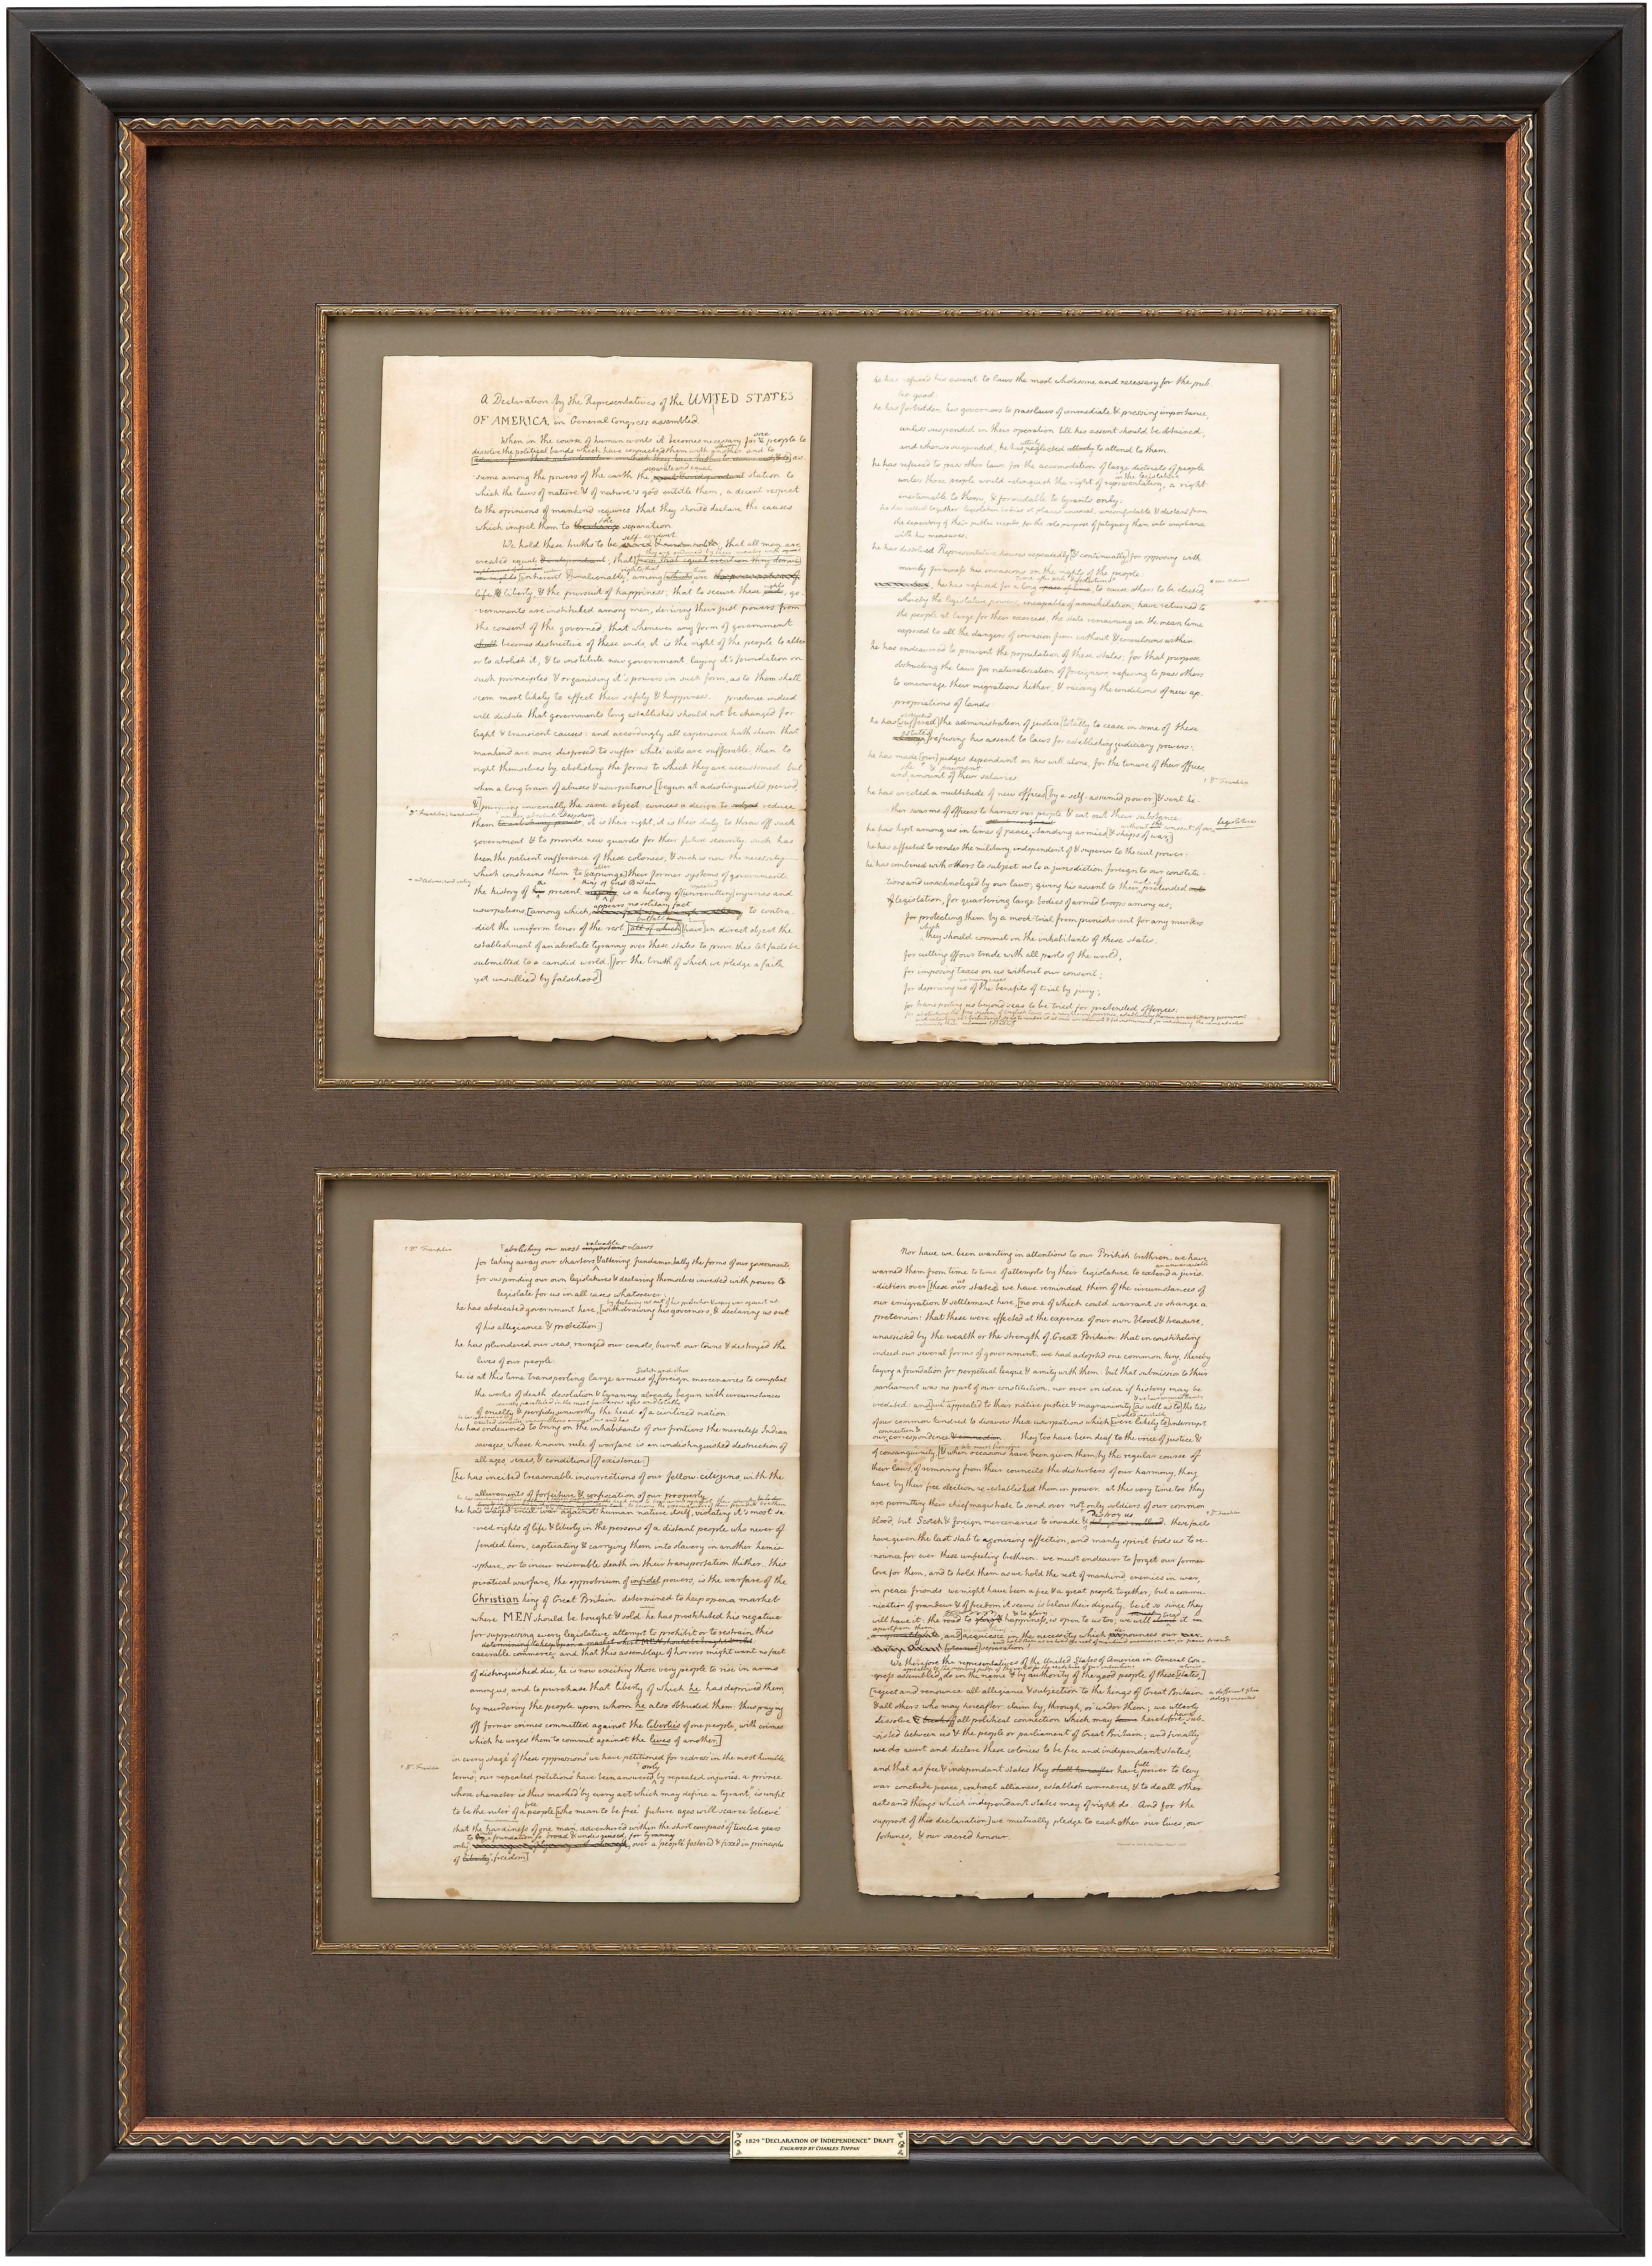 A Declaration by the Representatives of the UNITED STATES
OF AMERICA, in General Congress assembled.
When in the course of human events it becomes necessary for one people to
dissolve the political bands which have connected them with another, and to
as-
separate and equal
-sume among the powers of the earth the station to
which the laws of nature & of nature's god entitle them, a decent respect
to the opinions of mankind requires that they should declare the causes
the
which impel them to separation.
self-evident
We hold these truths to be that all men are
they are endowed by their creator with
created equal & independant, that from that equal creation they derive
rights that these
inherent & inalienable, among which are
rights
life, & liberty, & the pursuit of happiness; that to secure these ends, go-
vernments are instituted among men, deriving their just powers from
the consent of the governed; that whenever any form of government
shall becomes destructive of these ends, it is the right of the people to alter
or to abolish it, & to institute new government, laying it's foundation on
such principles & organising it's powers in such form, as to them shall
seem most likely to effect their safety & happiness. prudence indeed
will dictate that governments long established should not be changed for
light & transient causes: and accordingly all experience hath shewn that
mankind are more disposed to suffer while evils are sufferable, than to
right themselves by abolishing the forms to which they are accustomed. but
when a long train of abuses & usurpations [begun at a distinguished period,
&] pursuing invariably the same object, evinces a design to reduce
Dr. Franklin's handwriting
under absolute Despotism
them to arbitrary power, it is their right, it is their duty, to throw off such
government & to provide new guards for their future security. such has
been the patient sufferance of these colonies; & such is now the necessity
alter
which constrains them to [expunge] their former systems of government.
the king of Great Britain
the history of present is a history of [unremitting] injuries and
appears no solitary fact
usurpations, [among which, to contra-
but all
-dict the uniform tenor of the rest, all of which [have] in direct object the
establishment of an absolute tyranny over these states. to prove this let facts be
submitted to a candid world, [for the truth of which we pledge a faith
yet unsullied by falsehood]
he has refused his assent to laws the most wholesome and necessary for the pub-
-lic good:
he has forbidden his governors to pass laws of immediate & pressing importance,
unless suspended in their operation till his assent should be obtained;
utterly
and when so suspended, he has neglected utterly to attend to them.
he has refused to pass other laws for the accomodation of large districts of people
in the legislature
unless those people would relinquish the right of representation, a right
inestimable to them, & formidable to tyrants only:
he has called together legislative bodies at places unusual, uncomfortable & distant from
the depository of their public records for the sole purpose of fatiguing them into compliance
with his measures:
he has dissolved Representative houses repeatedly [& continually] for opposing with
manly firmness his invasions on the rights of the people:
he has refused for a long space of time, to cause others to be elected,
whereby the legislative powers, incapable of annihilation, have returned to
the people at large for their exercise, the state remaining in the mean time
exposed to all the dangers of invasion from without & convulsions within:
he has endeavored to prevent the population of these states; for that purpose
obstructing the laws for naturalization of foreigners, refusing to pass others
to encourage their migrations hither, & raising the conditions of new ap-
propriations of lands:
he has [suffered] the administration of justice [totally to cease in some of these
states]
refusing his assent to laws for establishing judiciary powers:
he has made [our] judges dependant on his will alone, for the tenure of their offices,
the & payment
and amount of their salaries:
† Dr. Franklin
he has erected a multitude of new offices [by a self-assumed power] & sent hi-
ther swarms of officers to harrass our people & eat out their substance:
without the consent of our legislatures
he has kept among us in times of peace, standing armies [& ships of war;]
he has affected to render the military, independent of & superior to the civil power:
he has combined with others to subject us to a jurisdiction foreign to our constitu-
tions and unacknoleged by our laws; giving his assent to their pretended acts
of legislation, for quartering large bodies of armed troops among us;
for protecting them by a mock-trial from punishment for any murders
which
they should commit on the inhabitants of these states;
for cutting off our trade with all parts of the world;
for imposing taxes on us without our consent;
for depriving us of the benefits of trial by jury;
for transporting us beyond seas to be tried for pretended offences:
† Dr. Franklin
abolishing our most important valuable Laws
for taking away our charters & altering fundamentally the forms of our governments
for suspending our own legislatures & declaring themselves invested with power to
legislate for us in all cases whatsoever:
by declaring us out of his protection & waging war against us
he has abdicated government here, [withdrawing his governors, & declaring us out
of his allegiance & protection:]
he has plundered our seas, ravaged our coasts, burnt our towns & destroyed the
lives of our people:
Scotch and other
he is at this time transporting large armies of foreign mercenaries to compleat
the works of death desolation & tyranny already begun with circumstances
scarcely paralleled in the most barbarous ages and totally
of cruelty & perfidy unworthy the head of a civilized nation:
he has endeavored to bring on the inhabitants of our frontiers the merciless Indian
savages, whose known rule of warfare is an undistinguished destruction of
all ages, sexes, & conditions [of existence:]
[he has incited treasonable insurrections of our fellow-citizens, with the
allurements of forfeiture & confiscation of our property:
he has waged cruel war against human nature itself, violating it's most sa-
-cred rights of life & liberty in the persons of a distant people who never of-
fended him, captivating & carrying them into slavery in another hemis-
-sphere, or to incur miserable death in their transportation thither. this
piratical warfare, the opprobrium of infidel powers, is the warfare of the
Christian king of Great Britain. determined to keep open a market
where MEN should be bought & sold, he has prostituted his negative
for suppressing every legislative attempt to prohibit or to restrain this
determining to keep open a market where MEN should be bought & sold
execrable commerce: and that this assemblage of horrors might want no fact
of distinguished die, he is now exciting those very people to rise in arms
among us, and to purchase that liberty of which he has deprived them,
by murdering the people upon whom he also obtruded them: thus paying
off former crimes committed against the liberties of one people, with crimes
which he urges them to commit against the lives of another.]
in every stage of these oppressions we have petitioned for redress in the most humble
† Dr. Franklin
only
terms; our repeated petitions have been answered by repeated injuries. a prince
whose character is thus marked by every act which may define a tyrant, is unfit
free
to be the ruler of a people [who mean to be free. future ages will scarce believe
that the hardiness of one man, adventured within the short compass of twelve years
a foundation so broad & undisguised, for tyranny
only, over a people fostered & fixed in principles
of liberty freedom]
Nor have we been wanting in attentions to our British brethren. we have
an unwarrantable
warned them from time to time of attempts by their legislature to extend a juris-
us
-diction over [these our states] we have reminded them of the circumstances of
our emigration & settlement here, [no one of which could warrant so strange a
pretension: that these were effected at the expence of our own blood & treasure,
unassisted by the wealth or the strength of Great Britain: that in constituting
indeed our several forms of government, we had adopted one common king, thereby
laying a foundation for perpetual league & amity with them: but that submission to their
parliament was no part of our constitution, nor ever in idea if history may be
credited: and] we appealed to their native justice & magnanimity [as well as to] the ties
of our common kindred to disavow these usurpations which [were likely to] interrupt
connection &
our correspondence & connection. they too have been deaf to the voice of justice &
of consanguinity, [& when occasions have been given them, by the regular course of
their laws, of removing from their councils the disturbers of our harmony, they
have by their free election re-established them in power. at this very time too they
are permitting their chief magistrate to send over not only soldiers of our common
destroy us
† Dr. Franklin
blood, but Scotch & foreign mercenaries to invade & these facts
have given the last stab to agonizing affection, and manly spirit bids us to re-
-nounce for ever these unfeeling brethren. we must endeavor to forget our former
love for them, and to hold them as we hold the rest of mankind, enemies in war,
in peace friends. we might have been a free & a great people together; but a commu-
-nication of grandeur & of freedom it seems is below their dignity. be it so, since they
will have it: the road to happiness is open to us too; we will
apart from them
and] acquiesce in the necessity which denounces our
[eternal] separation!
We therefore the representatives of the United States of America in General Con-
-gress assembled, do in the name & by authority of the good people of these [states,]
[reject and renounce all allegiance & subjection to the kings of Great Britain
& all others who may hereafter claim by, through, or under them; we utterly
dissolve & break off all political connection which may have heretofore sub-
-sisted between us & the people or parliament of Great Britain; and finally
we do assert and declare these colonies to be free and independant states,
full
and that as free & independant states they shall hereafter have power to levy
war conclude peace, contract alliances, establish commerce, & to do all other
acts and things which independant states may of right do. And for the
support of this declaration] we mutually pledge to each other our lives, our
fortunes, & our sacred honour.
1829 "DECLARATION OF INDEPENDENCE" DRAFT
ENGRAVED BY CHARLES TOPPAN